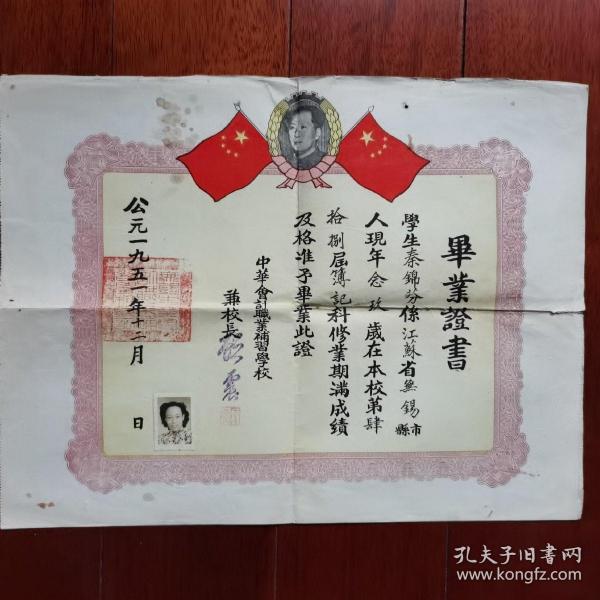 畢業證書
學生秦錦芬係江蘇省無錫市縣
人現年念玖歲在本校第肆
拾捌屆簿記科修業期滿成績
及格准予畢業此證
中華會計職業補習學校
兼校長
公元一九五一年十二月 日
孔夫子旧书网
www.kongfz.com